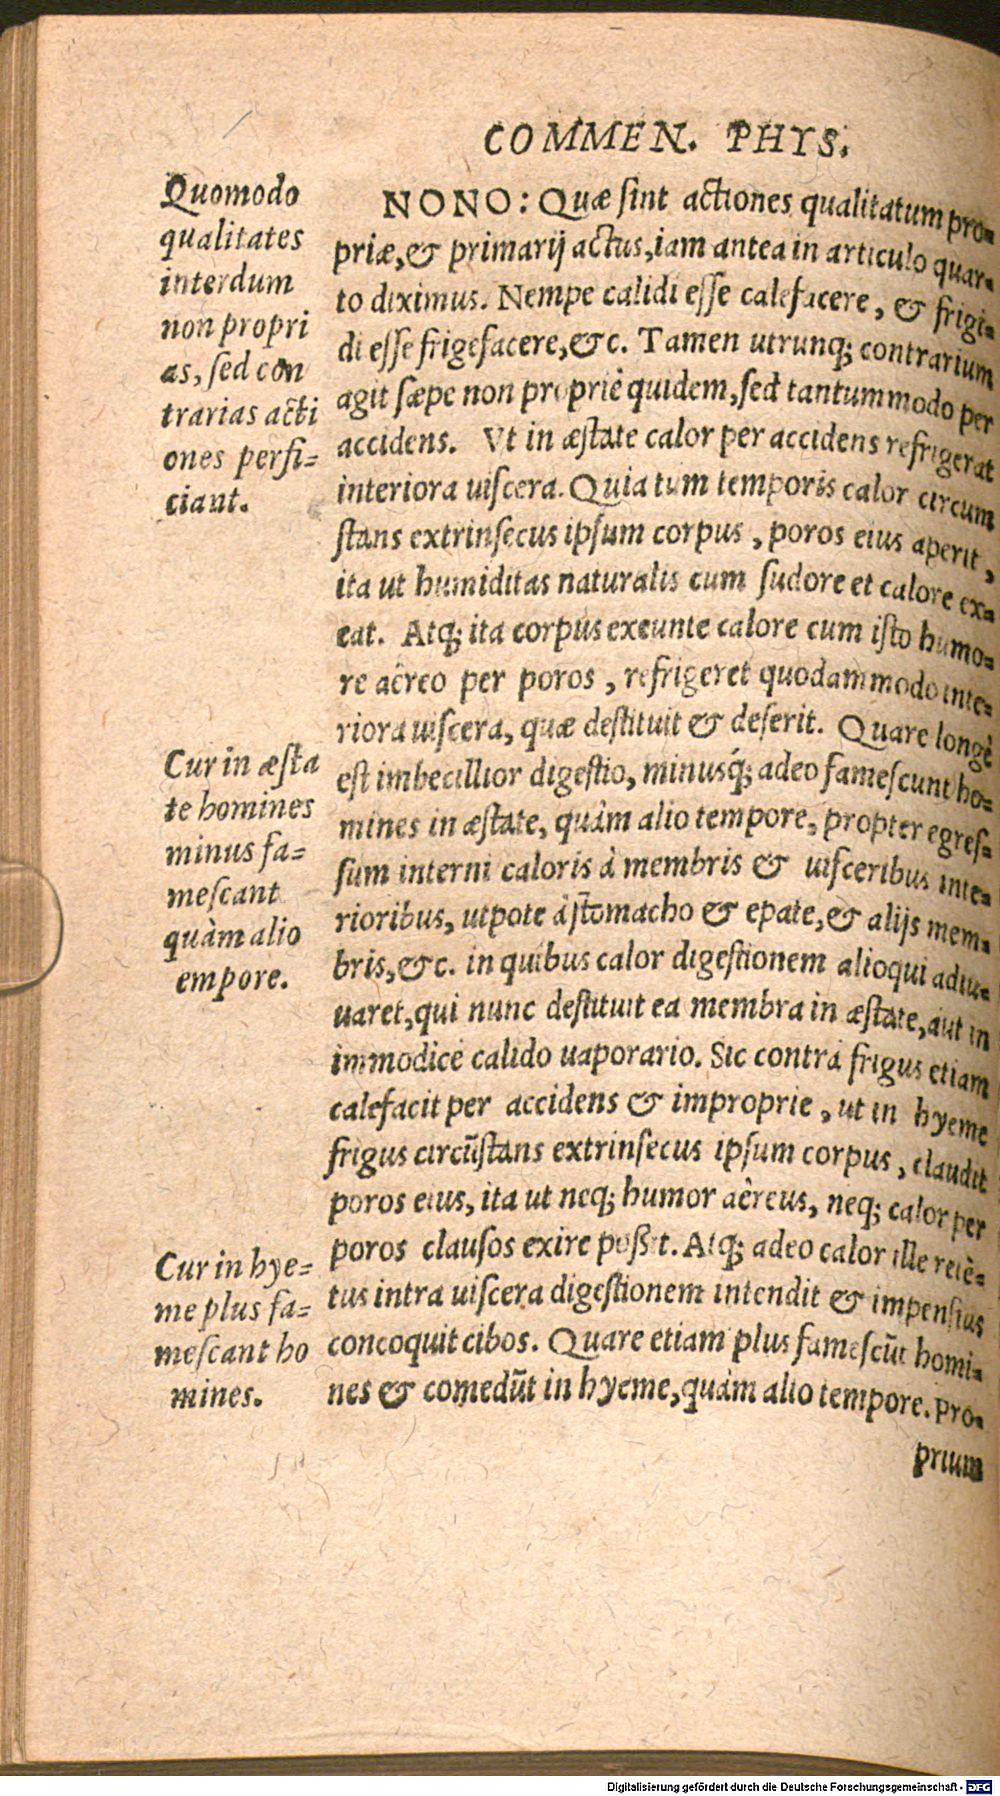 COMMEN. PHYS.
Quomodo
qualitates
interdum
non propri
as, sed con
trarias acti
ones perfi=
ciant.
NONO: Quæ sint actiones qualitatum pro=
priæ, & primarij actus, iam antea in articulo quar=
to diximus. Nempe calidi esse calefacere, & frigi=
di esse frigefacere, &c. Tamen utrunq; contrarium
agit sæpe non propriè quidem, sed tantummodo per
accidens. Vt in æstate calor per accidens refrigerat
interiora uiscera. Quia tum temporis calor circum
stans extrinsecus ipsum corpus, poros eius aperit,
ita ut humiditas naturalis cum sudore et calore ex=
eat. Atq; ita corpus exeunte calore cum isto humo=
re aëreo per poros, refrigeret quodammodo inte=
riora uiscera, quæ destituit & deserit. Quare longè
est imbecillior digestio, minusq́; adeo famescunt ho=
mines in æstate, quàm alio tempore, propter egres=
sum interni caloris à membris & uisceribus inte=
rioribus, utpote à stomacho & epate, & alijs mem=
bris, &c. in quibus calor digestionem alioqui adiu=
uaret, qui nunc destituit ea membra in æstate, aut in
immodicè calido uaporario. Sic contrà frigus etiam
calefacit per accidens & impropriè, ut in hyeme
frigus circũstans extrinsecus ipsum corpus, claudit
poros eius, ita ut neq; humor aëreus, neq; calor per
poros clausos exire possit. Atq; adeo calor ille retẽ=
tus intra uiscera digestionem intendit & impensius
concoquit cibos. Quare etiam plus famescũt homi=
nes & comedũt in hyeme, quàm alio tempore. Pro=
prium
Cur in æsta
te homines
minus fa=
mescant
quàm alio
empore.
Cur in hye=
me plus fa=
mescant ho
mines.
Digitalisierung gefördert durch die Deutsche Forschungsgemeinschaft - DFG